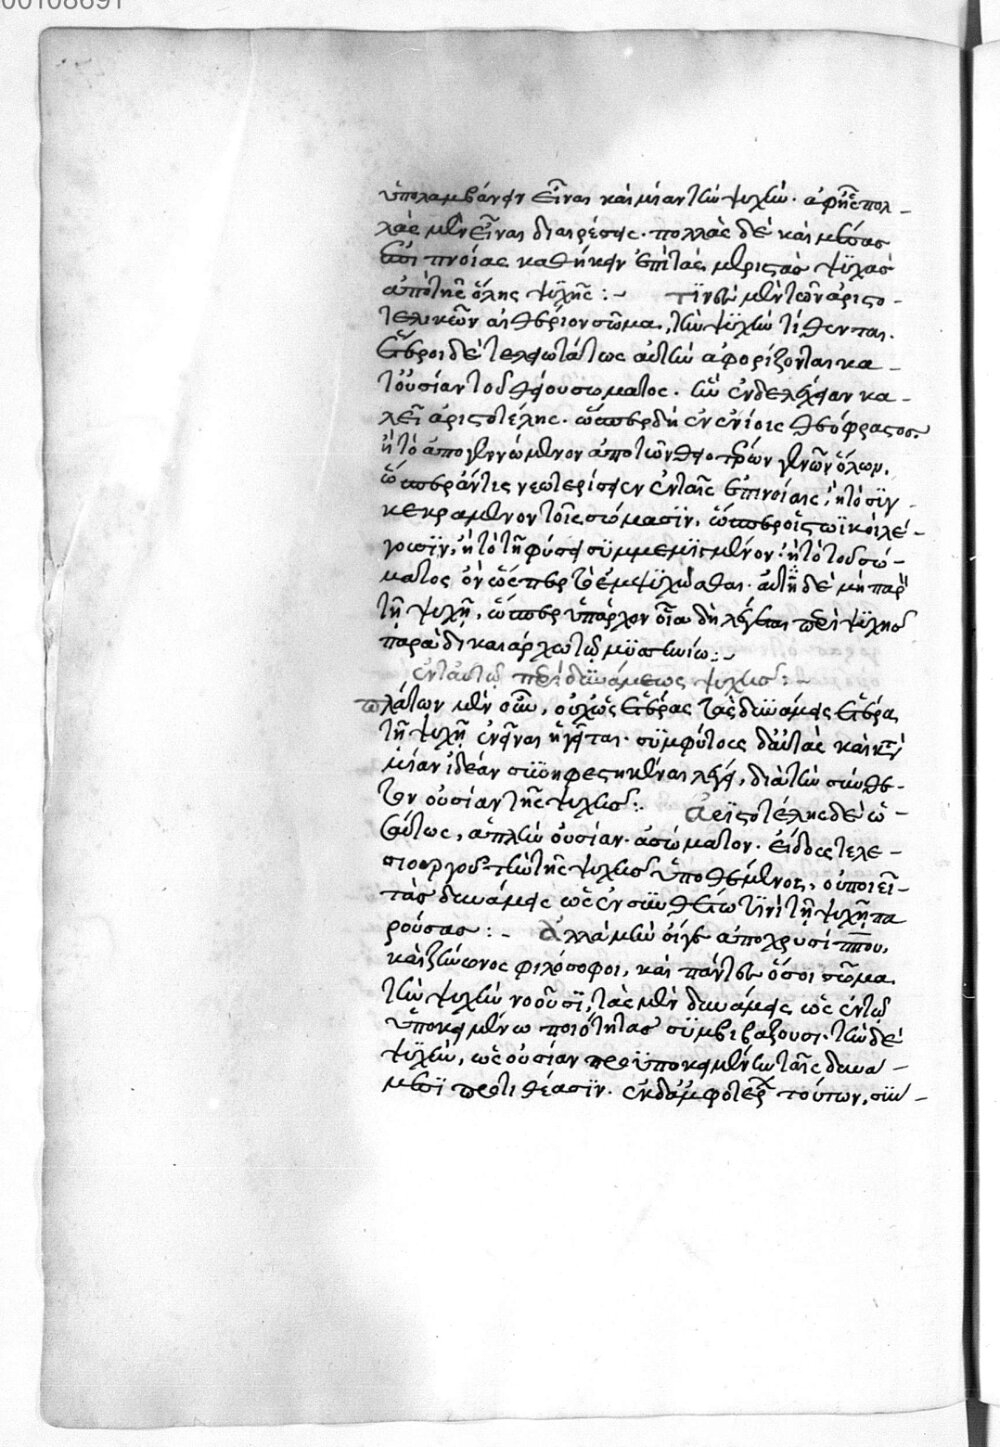 00108691
ὑπολαμβάνειν εἶναι καὶ μίαν τὴν ψυχήν. ἀφ' ἧς πολ-
λὰς μὲν εἶναι διαιρέσεις. πολλὰς δὲ καὶ μέσας
ἐπιπνοίας καθήκειν ἐπὶ τὰς μεριστὰς ψυχὰς
ἀπὸ τῆς ὅλης ψυχῆς :~ τινὲς μὲν τῶν ἀριστο-
τελικῶν αἰθέριον σῶμα, τὴν ψυχὴν τίθενται.
ἕτεροι δὲ τελειότατος αὐτὴν ἀφορίζονται κα-
τ' οὐσίαν τοῦ θείου σώματος. ἣν ἐνδελέχειαν κα-
λεῖ ἀριστοτέλης. ὥσπερ δὴ ἐν ἐνίοις θεόφραστος.
ἢ τὸ ἀπογεννώμενον ἀπὸ τῶν θειοτέρων γενῶν ὅλων.
ὥσπερ ἄν τις νεωτερίσειεν ἐν ταῖς ἐπινοίαις, ἢ τὸ συγ-
κεκραμένον τοῖς σώμασιν, ὥσπερ οἱ στωϊκοὶ λέ-
γουσιν, ἢ τὸ τῇ φύσει συμμεμιγμένον. ἢ τὸ τοῦ σώ-
ματος ὂν ὥσπερ τὸ ἐμψυχῶσθαι. αὐτῇ δὲ μὴ παρὸν
τῇ ψυχῇ, ὥσπερ ὑπάρχον οἷα δὴ λέγεται περὶ ψυχῆς
παρὰ δικαιάρχῳ τῷ μεσσηνίῳ :~
ἐν ταὐτῷ περὶ δυνάμεως ψυχῆς :~
πλάτων μὲν οὖν, οὐχ ὡς ἑτέρας τὰς δυνάμεις ἑτέρα
τῇ ψυχῇ ἐνεῖναι ἡγεῖται. συμφύτους δ' αὐτὰς καὶ κατὰ
μίαν ἰδέαν συνυφεστηκέναι λέγει, διὰ τὴν σύνθε-
τον οὐσίαν τῆς ψυχῆς :~ ἀριστοτέλης δὲ ὡ-
σαύτως, ἁπλῆν οὐσίαν. ἀσώματον. εἴδους τελε-
σιουργοῦ τὴν τῆς ψυχῆς ὑποθέμενος, οὐ ποιεῖ-
τὰς δυνάμεις ὡς ἐν συνθέτῳ τινὶ τῇ ψυχῇ πα
ρούσας :~ ἀλλὰ μὴν οἵγε ἀπὸ χρυσίππου,
καὶ ζήνωνος φιλόσοφοι, καὶ πάντες ὅσοι σῶμα
τὴν ψυχὴν νοοῦσι, τὰς μὲν δυνάμεις ὡς ἐν τῷ
ὑποκειμένῳ ποιότητας συμβιβάζουσι. τὴν δὲ
ψυχήν, ὡς οὐσίαν προϋποκειμένην ταῖς δυνά-
μεσι προτιθέασιν. ἐκ δ' ἀμφοτέρων τούτων, συν-